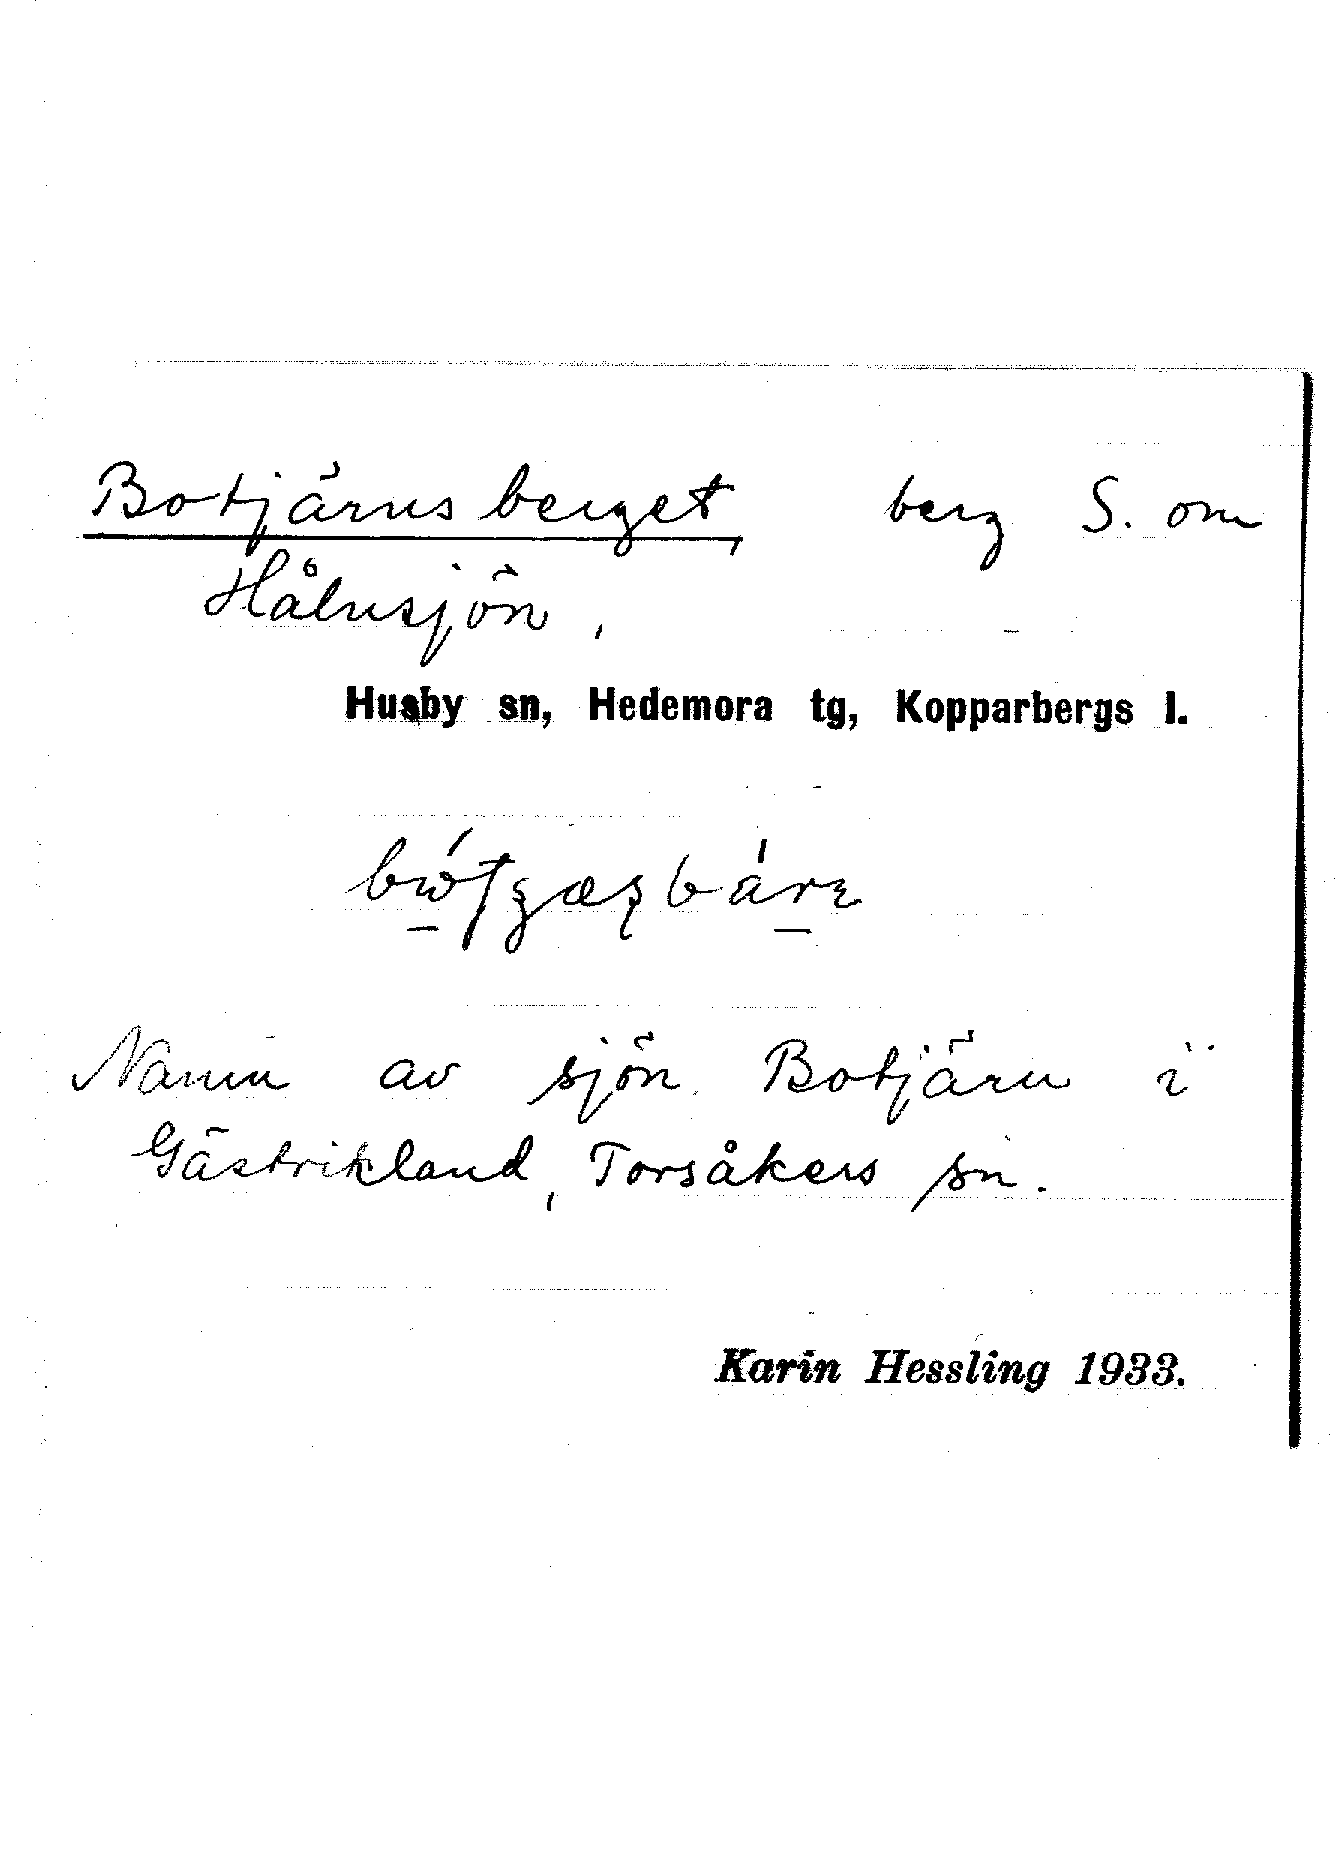 Botjärnsberget, berg S. om
Hålnsjön,
Husby sn, Hedemora tg, Kopparbergs l.
Namn av sjön Botjärn i
Gästrikland, Torsåkers sn.
Karin Hessling 1933.